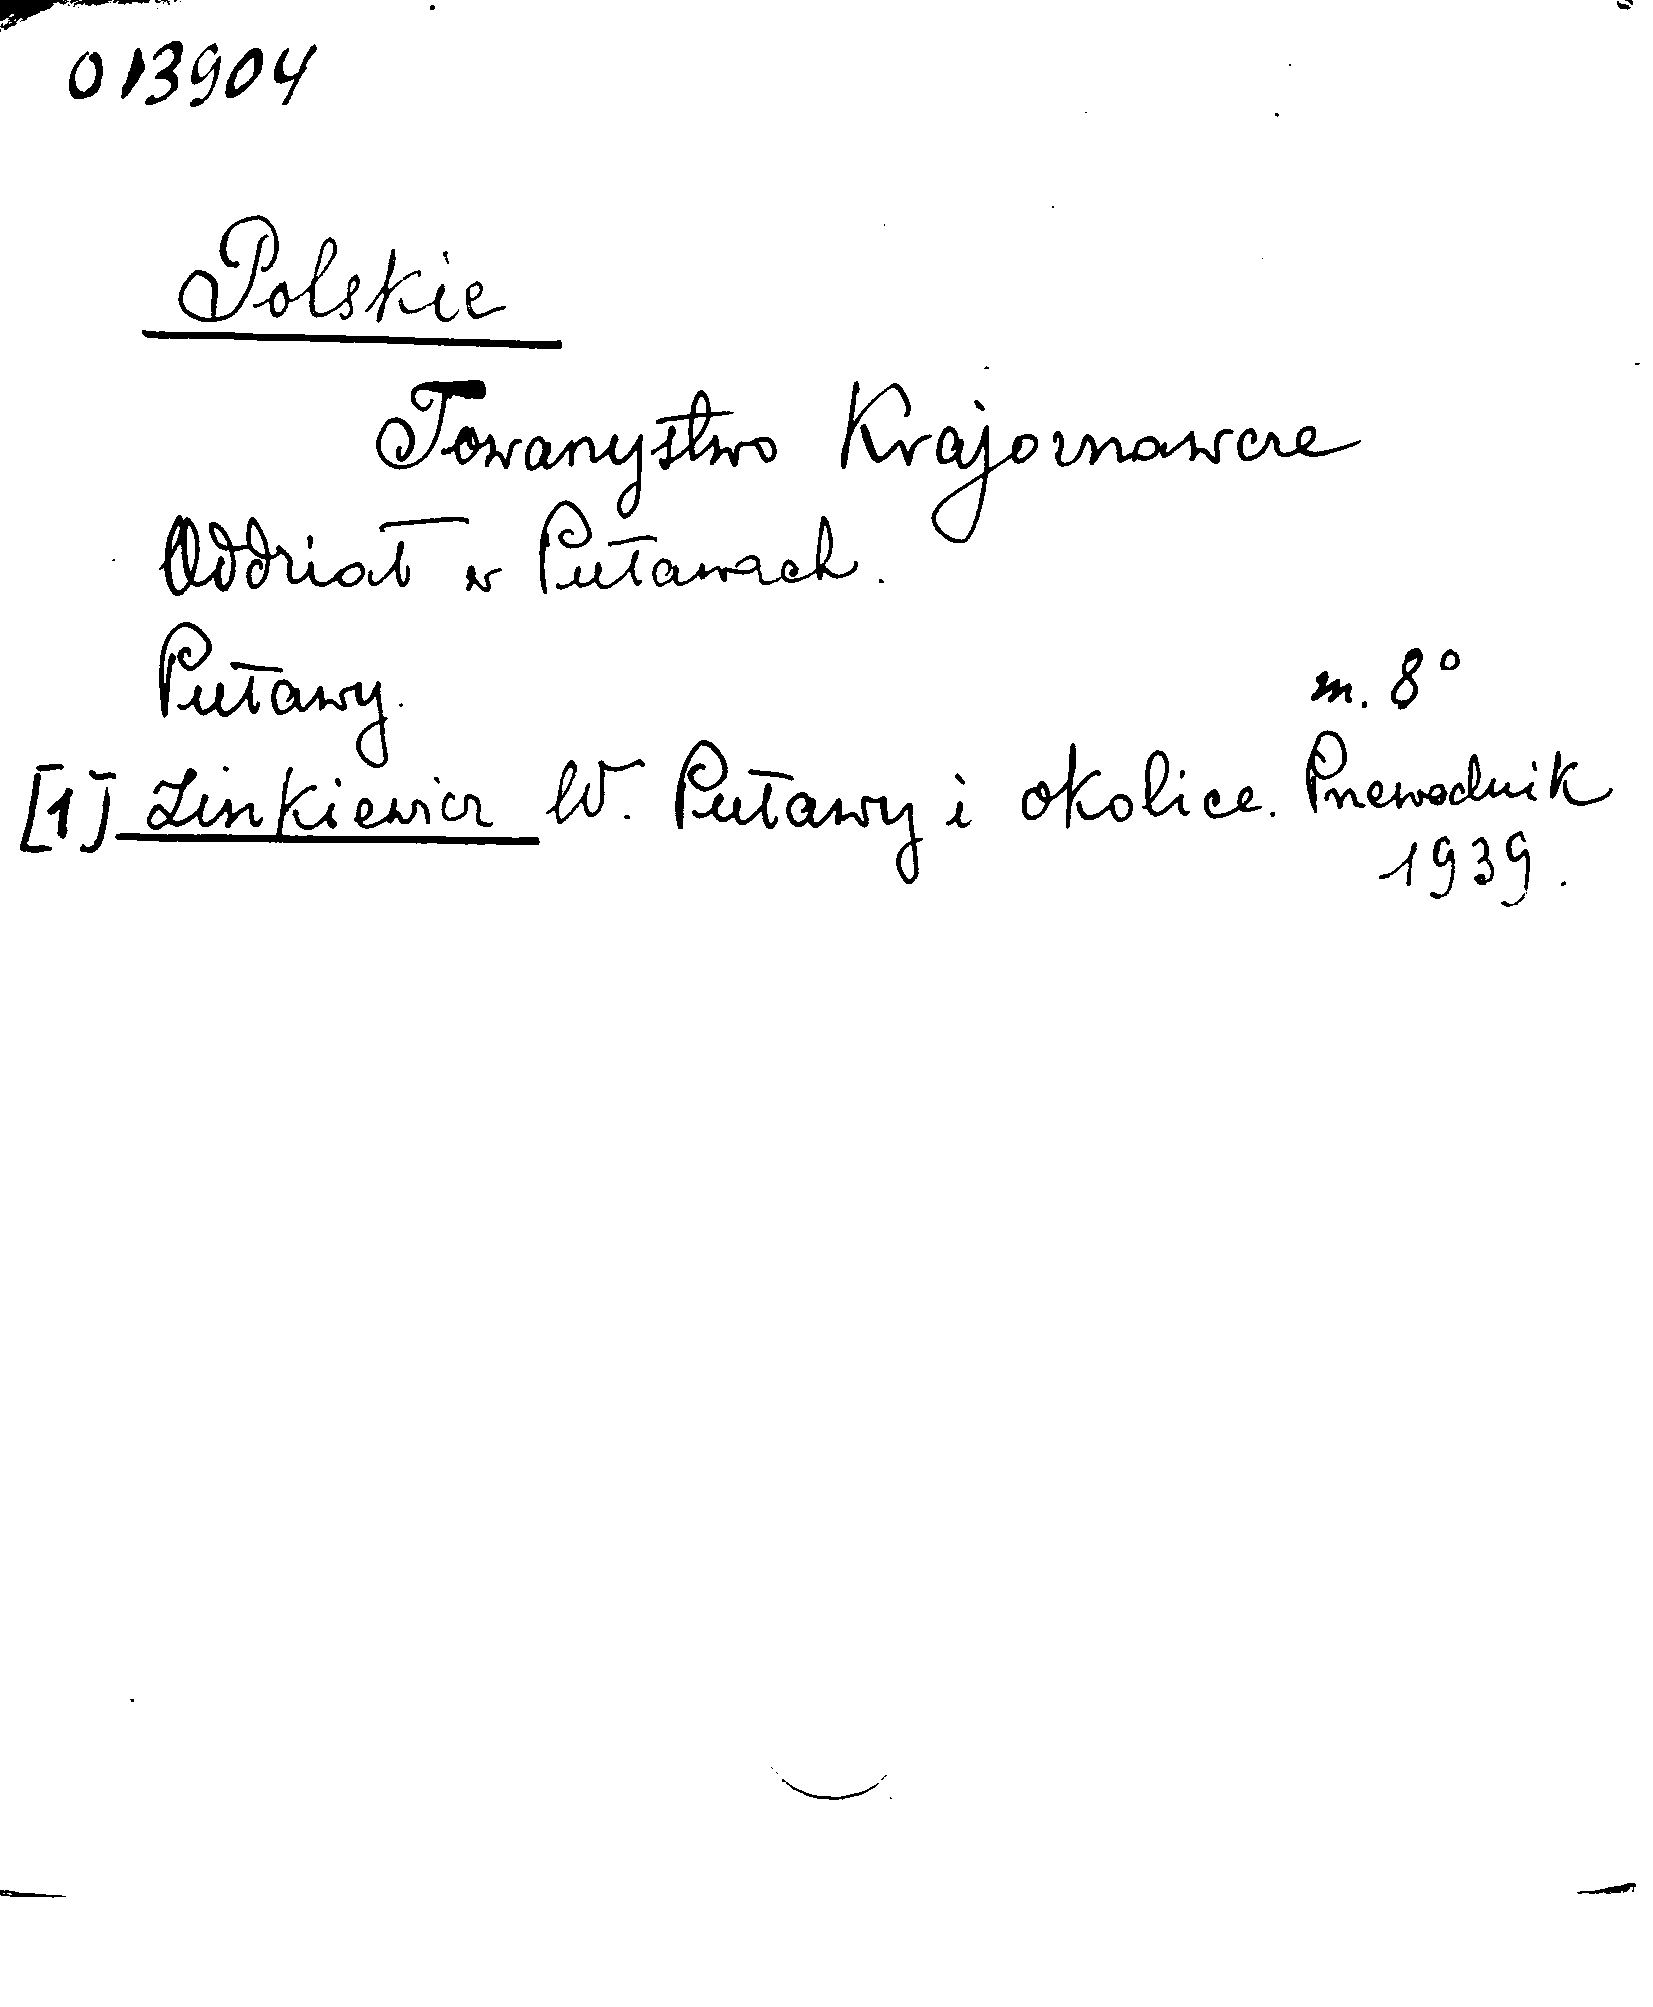 013904
Polskie
Towarzystwo Krajoznawcze
Oddział w Puławach.
Puławy.
m. 8°
[1] Zinkiewicz W. Puławy i okolice. Przewodnik
1939.